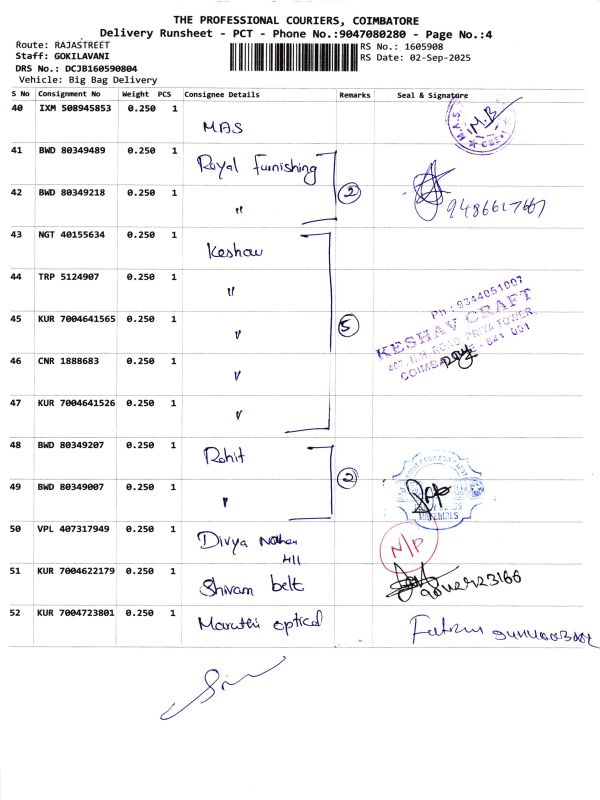 THE PROFESSIONAL COURIERS, COIMBATORE
Delivery Runsheet - PCT - Phone No.:9047080280 - Page No.:4
Route: RAJASTREET
Staff: GOKILAVANI
DRS No.: DCJB160590804
Vehicle: Big Bag Delivery
RS No.: 1605908
RS Date: 02-Sep-2025
S No Consignment No Weight PCS Consignee Details Remarks Seal & Signature
40 IXM 508945853 0.250 1 MAS M.B
41 BWD 80349489 0.250 1 Royal Furnishing
42 BWD 80349218 0.250 1 " 2
43 NGT 40155634 0.250 1 Keshav
44 TRP 5124907 0.250 1 "
45 KUR 7004641565 0.250 1 " 5
Ph : 9344051097
KESHAV CRAFT
46 CNR 1888683 0.250 1 "
47 KUR 7004641526 0.250 1 "
48 BWD 80349207 0.250 1 Rohit
49 BWD 80349007 0.250 1 " 2
50 VPL 407317949 0.250 1 Divya N/P
411
51 KUR 7004622179 0.250 1 Shivam belt
52 KUR 7004723801 0.250 1 Maruthi optical